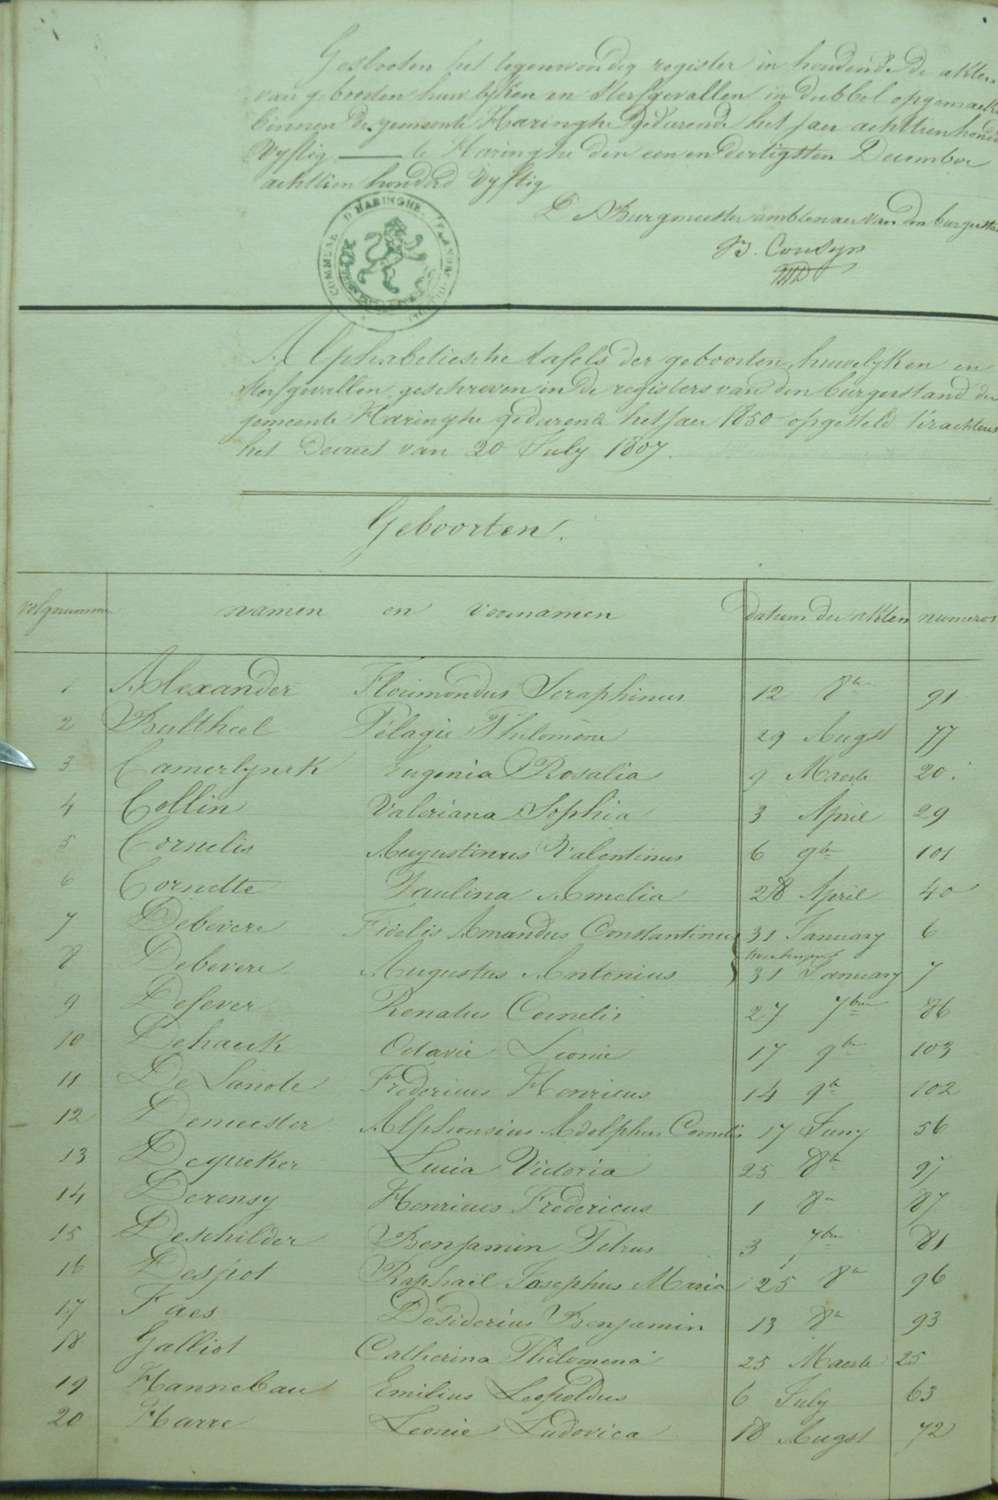 Gesloten het tegenwoordig register in houdende de akten
van gebooten huw lyken en sterfgevallen in dubbel opgemaekt
binnen de gemeente Haringhe gedurende het jaer achttien honderd
vyftig — te Haringhe den een en dertigsten December
achttien honderd vyftig
D Burgmeester ambtenaer van den burgerstand
B. Cousyn
COMMUNE D'HARINGHE
Alphabetische tafels der geboorten, huwelyken en
sterfgevallen geschreven in de registers van den burgerstand der
gemeente Haringhe gedurende het jaer 1850 opgesteld
het Decreet van 20 July 1807.
Geboorten.
volgnummer namen en voornamen datum der akten numeros
1 Alexander Florimondus Seraphinus 12 8bre 91
2 Bultheel Pélagie Philomène 29 Augst 77
3 Camerlynck Eugenia Rosalia 9 Maerte 20
4 Collin Valeriana Sophia 3 April 29
5 Cornelis Augustinus Valentinus 6 9bre 101
6 Cornette Paulina Amelia 28 April 40
7 Debevere Fidelis Amandus Constantinus 31 January 6
8 Debevere Augustus Antonius 31 January 7
9 Defever Renatus Cornelis 27 7bre 86
10 Dehauk Octavie Leonie 17 9bre 103
11 De Lanote Fredericus Henricus 14 9bre 102
12 Demeester Alphonsius Adolphus Cornelis 17 Juny 56
13 Dequeker Lucia Victoria 25 8bre 97
14 Derensy Henricus Fredericus 1 8bre 87
15 Deschilder Benjamin Petrus 3 7bre 81
16 Despot Raphaël Josephus Maria 25 8bre 96
17 Faes Desiderius Benjamin 13 8bre 93
18 Galliot Catherina Philomena 25 Maerte 25
19 Hannebau Emilius Leopoldus 6 July 63
20 Harre Leonie Ludovica 18 Augst 72